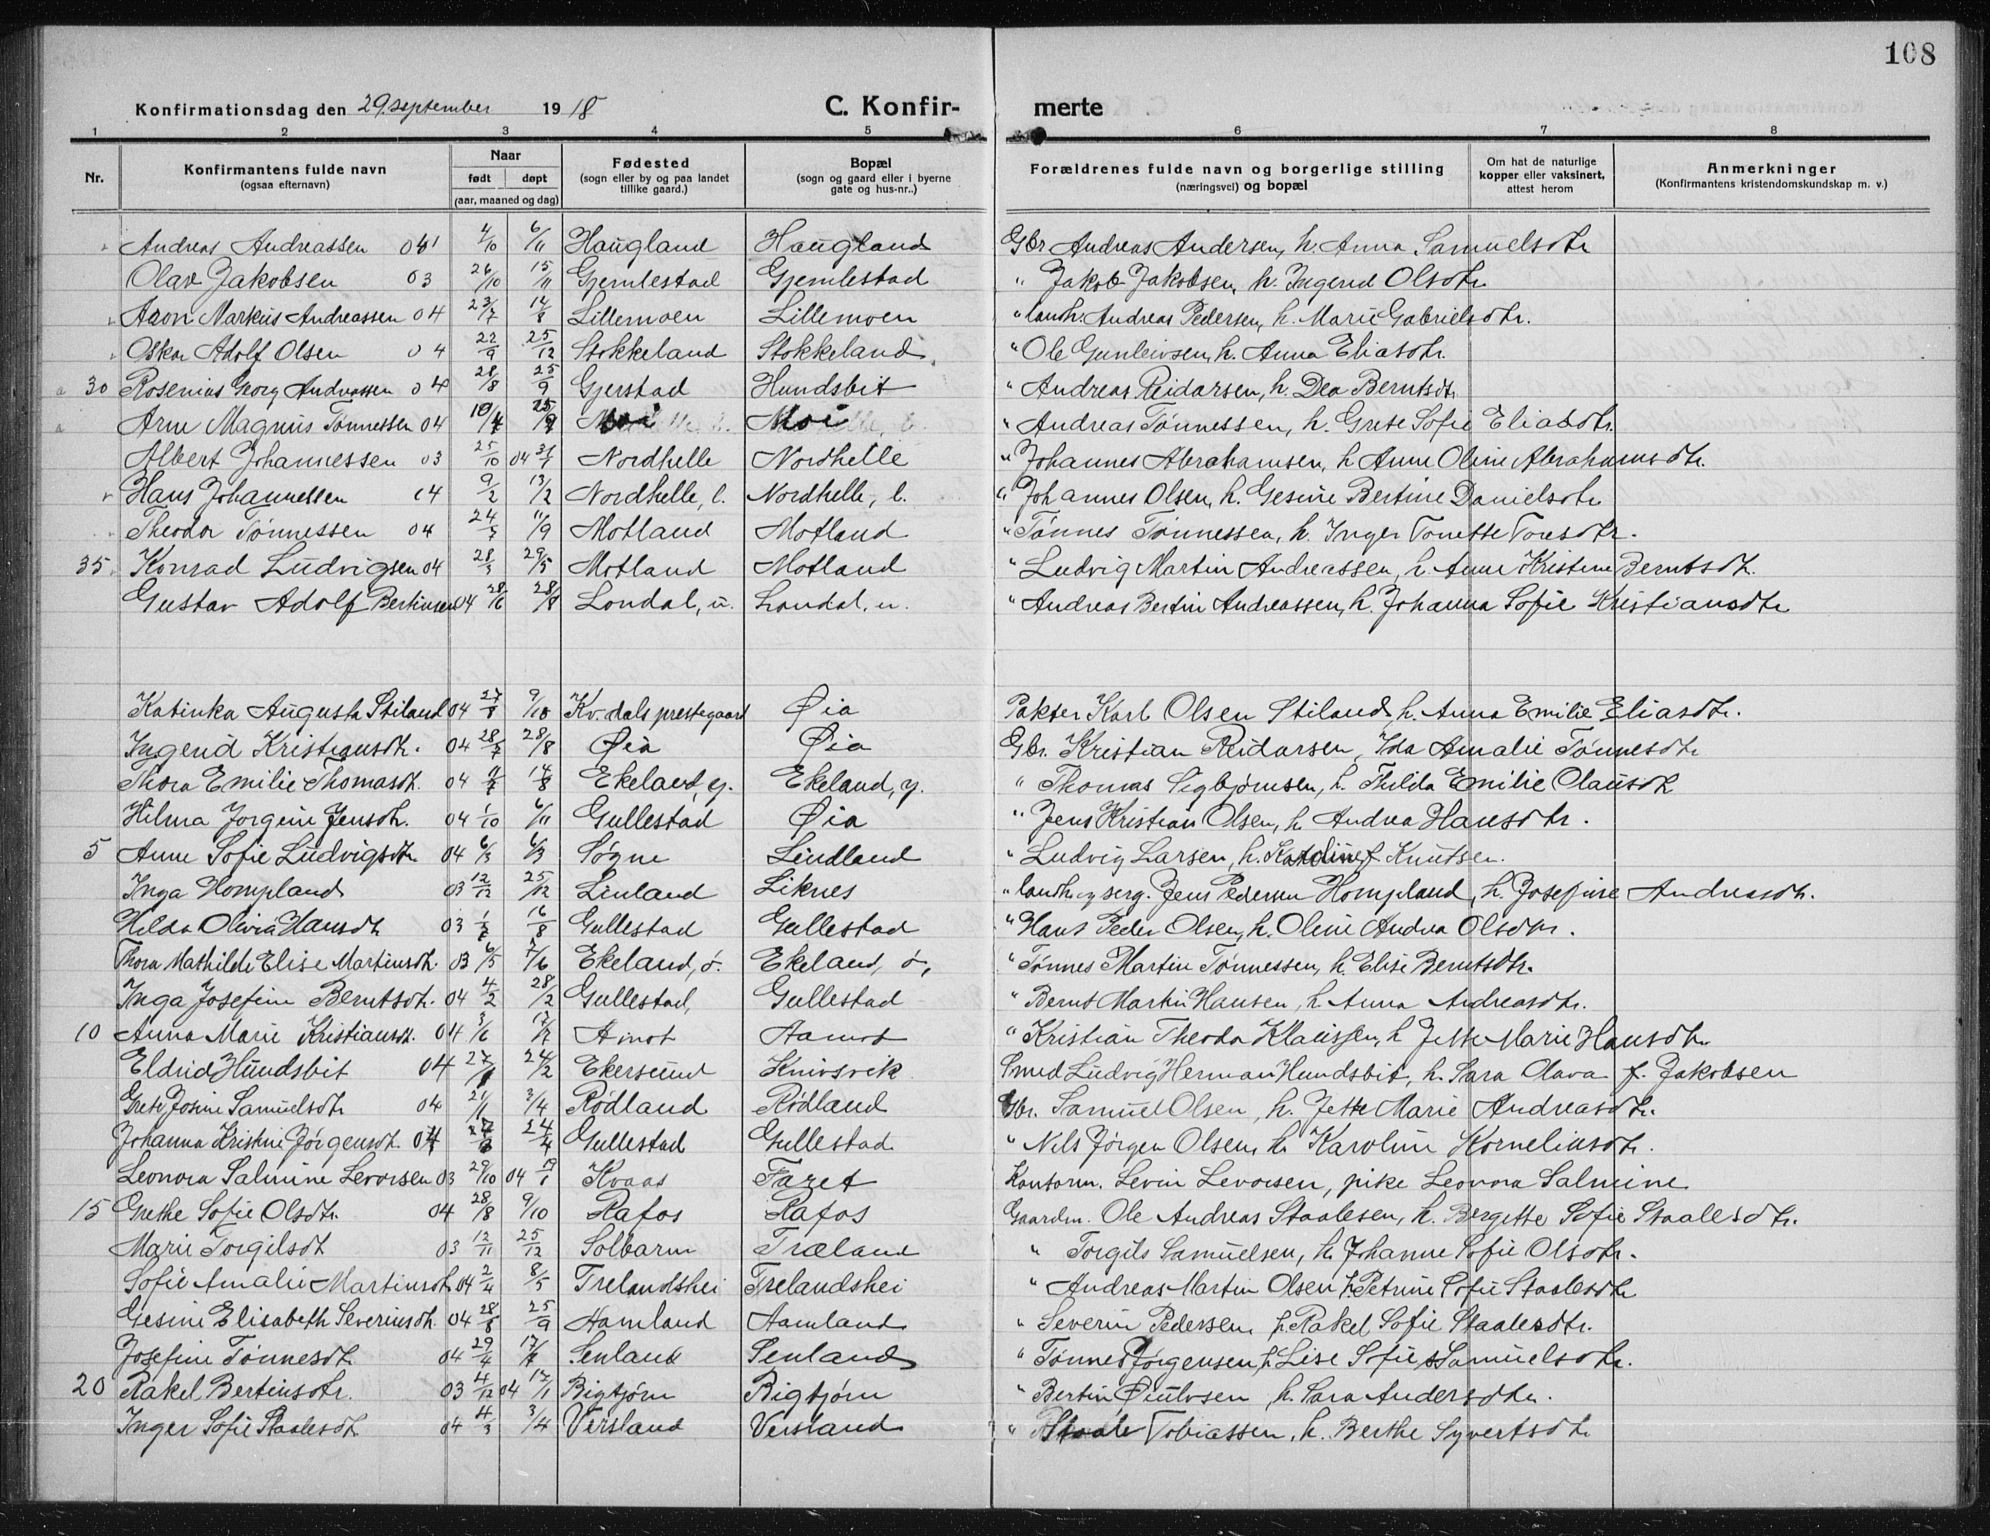 108
Konfirmationsdag den 29. september 1918 C. Konfir- merte
1 2 3 4 5 6 7 8
Nr. Konfirmantens fulde navn (ogsaa efternavn) Naar født døpt (aar, maaned og dag) Fødested (sogn eller by og paa landet tillike gaard.) Bopæl (sogn og gaard eller i byerne gate og hus-nr..) Forældrenes fulde navn og borgerlige stilling (næringsvei) og bopæl Om hat de naturlige kopper eller vaksinert, attest herom Anmerkninger (Konfirmantens kristendomskundskap m. v.)
Andreas Andreassen 04 4/10 6/11 Haugland Haugland Gbr. Andreas Andersen, h. Anna Samuelsdtr
Olav Jakobsen 03 26/10 15/11 Gjemlestad Gjemlestad " Jakob Jakobsen, h. Ingerid Olsdtr
Aron Markus Andreassen 04 23/7 14/8 Lillemoen Lillemoen " landh. Andreas Pedersen, h. Marie Gabrielsdtr.
Oskar Adolf Olsen 04 22/9 25/12 Stokkeland Stokkeland " Ole Gunleivsen, h. Anna Eliasdtr.
30 Rosenius Georg Andreassen 04 28/8 25/9 Gjerstad Hundsbit " Andreas Reidarsen, h. Dea Berntsdtr.
Arne Magnus Tønnessen 04 Moi Moi " Andreas Tønnessen, h. Grete Sofie Eliasdtr.
Albert Johannessen 03 25/10 04 31/1 Nordhelle Nordhelle " Johannes Abrahamsen, h. Anne Oline Abrahamsdtr.
Hans Johannessen 04 9/2 13/2 Nordhelle, l. Nordhelle, l. " Johannes Olsen, h. Gesine Bertine Danielsdtr
Theodor Tønnessen 04 11/9 Motland Motland " Tønnes Tønnessen, h. Inger Tonette Toresdtr.
35 Konrad Ludvigsen 04 28/3 29/5 Motland Motland " Ludvig Martin Andreassen, h. Anne Kristine Berntsdtr.
Gustav Adolf Bertinsen 04 28/6 28/8 Londal, u. Londal, u. " Andreas Bertin Andreassen, h. Johanna Sofie Kristiansdtr
Katinka Augusta Stiland 04 27/8 9/10 Kv.dals prestegaard Øia Pakter Karl Olsen Stiland, h. Anna Emilie Eliasdtr.
Ingerid Kristiansdtr. 04 28/7 28/8 Øia Øia Gbr. Kristian Reidarsen, Ida Amalie Tønnesdtr
Thora Emilie Thomasdtr. 04 14/8 Ekeland, y. Ekeland, y. " Thomas Sigbjørnsen, h. Thilda Emilie Olausdtr
Hilma Jorgine Jensdtr. 04 1/10 6/11 Gullestad Øia " Jens Kristian Olsen, h. Andrea Hansdtr.
5 Anne Sofie Ludvigsdtr 04 6/3 6/3 Søgne Lindland " Ludvig Larsen, h. Karoline f. Knutsen.
Inga Hompland 03 12/12 25/12 Linland Liknes " landh. og serg. Jens Pedersen Hompland, h. Josefine Andreasdtr.
Hilda Olivia Hansdtr 03 16/8 Gullestad Gullestad " Hans Peder Olsen, h. Oline Andrea Olsdtr.
Thora Mathilde Elise Martinsdtr. 03 6/5 7/6 Ekeland, ø. Ekeland, ø. " Tønnes Martin Tønnessen, h. Elise Berntsdtr.
Inga Josefine Berntsdtr. 04 4/2 28/2 Gullestad, Gullestad " Bernt Martin Hansen, h. Anna Andreasdtr.
10 Anna Marie Kristiansdtr. 04 3/6 17/7 Amot Aamot " Kristian Theodor Klaussen, h Jette Marie Hansdtr.
Eldrid Hundsbit 04 27/1 24/2 Ekersund Knivsvik Smed Ludvig Herman Hundsbit, h. Sara Olava f. Jakobsen
Grete Josine Samuelsdtr 04 21/1 3/4 Rødland Rødland Gbr. Samuel Olsen, h. Jette Marie Andreasdtr.
Johanna Kristine Jørgensdtr. 04 24/4 Gullestad Gullestad " Nils Jørgen Olsen, h. Karoline Korneliusdtr.
Leonora Salmine Levorsen 03 29/10 04 19/1 Kvaas Faret Kontorm. Levin Levorsen, pike Leonora Salmine
15 Grethe Sofie Olsdtr. 04 28/8 9/10 Rafos Rafos Gaardm. Ole Andreas Staalesen, h. Bergette Sofie Staalesdtr.
Marie Torgilsdt 03 12/11 25/12 Solbarm Træland " Torgils Samuelsen, h. Johanne Sofie Olsdtr.
Sofie Amalie Martinsdt. 04 2/4 8/5 Trelandshei Trelandshei " Andreas Martin Olsen h. Petrine Sofie Staalesdtr
Gesine Elisabeth Severinsdtr. 04 28/8 25/9 Hamland Aamland " Severin Pedersen h. Rakel Sofie Staalesdtr.
Josefine Tønnesdtr. 04 29/4 17/7 Senland Senland " Tønnes Jørgensen, h. Lise Sofie Samuelsdtr.
20 Rakel Bertinsdtr. 03 4/12 04 17/1 Rigtjørn Rigtjørn " Bertin Øiulvsen h. Sara Andersdtr.
Inger Sofie Staalesdt. 04 4/3 3/4 Versland Versland " Staale Tobiassen, h. Berthe Syvertsdtr.